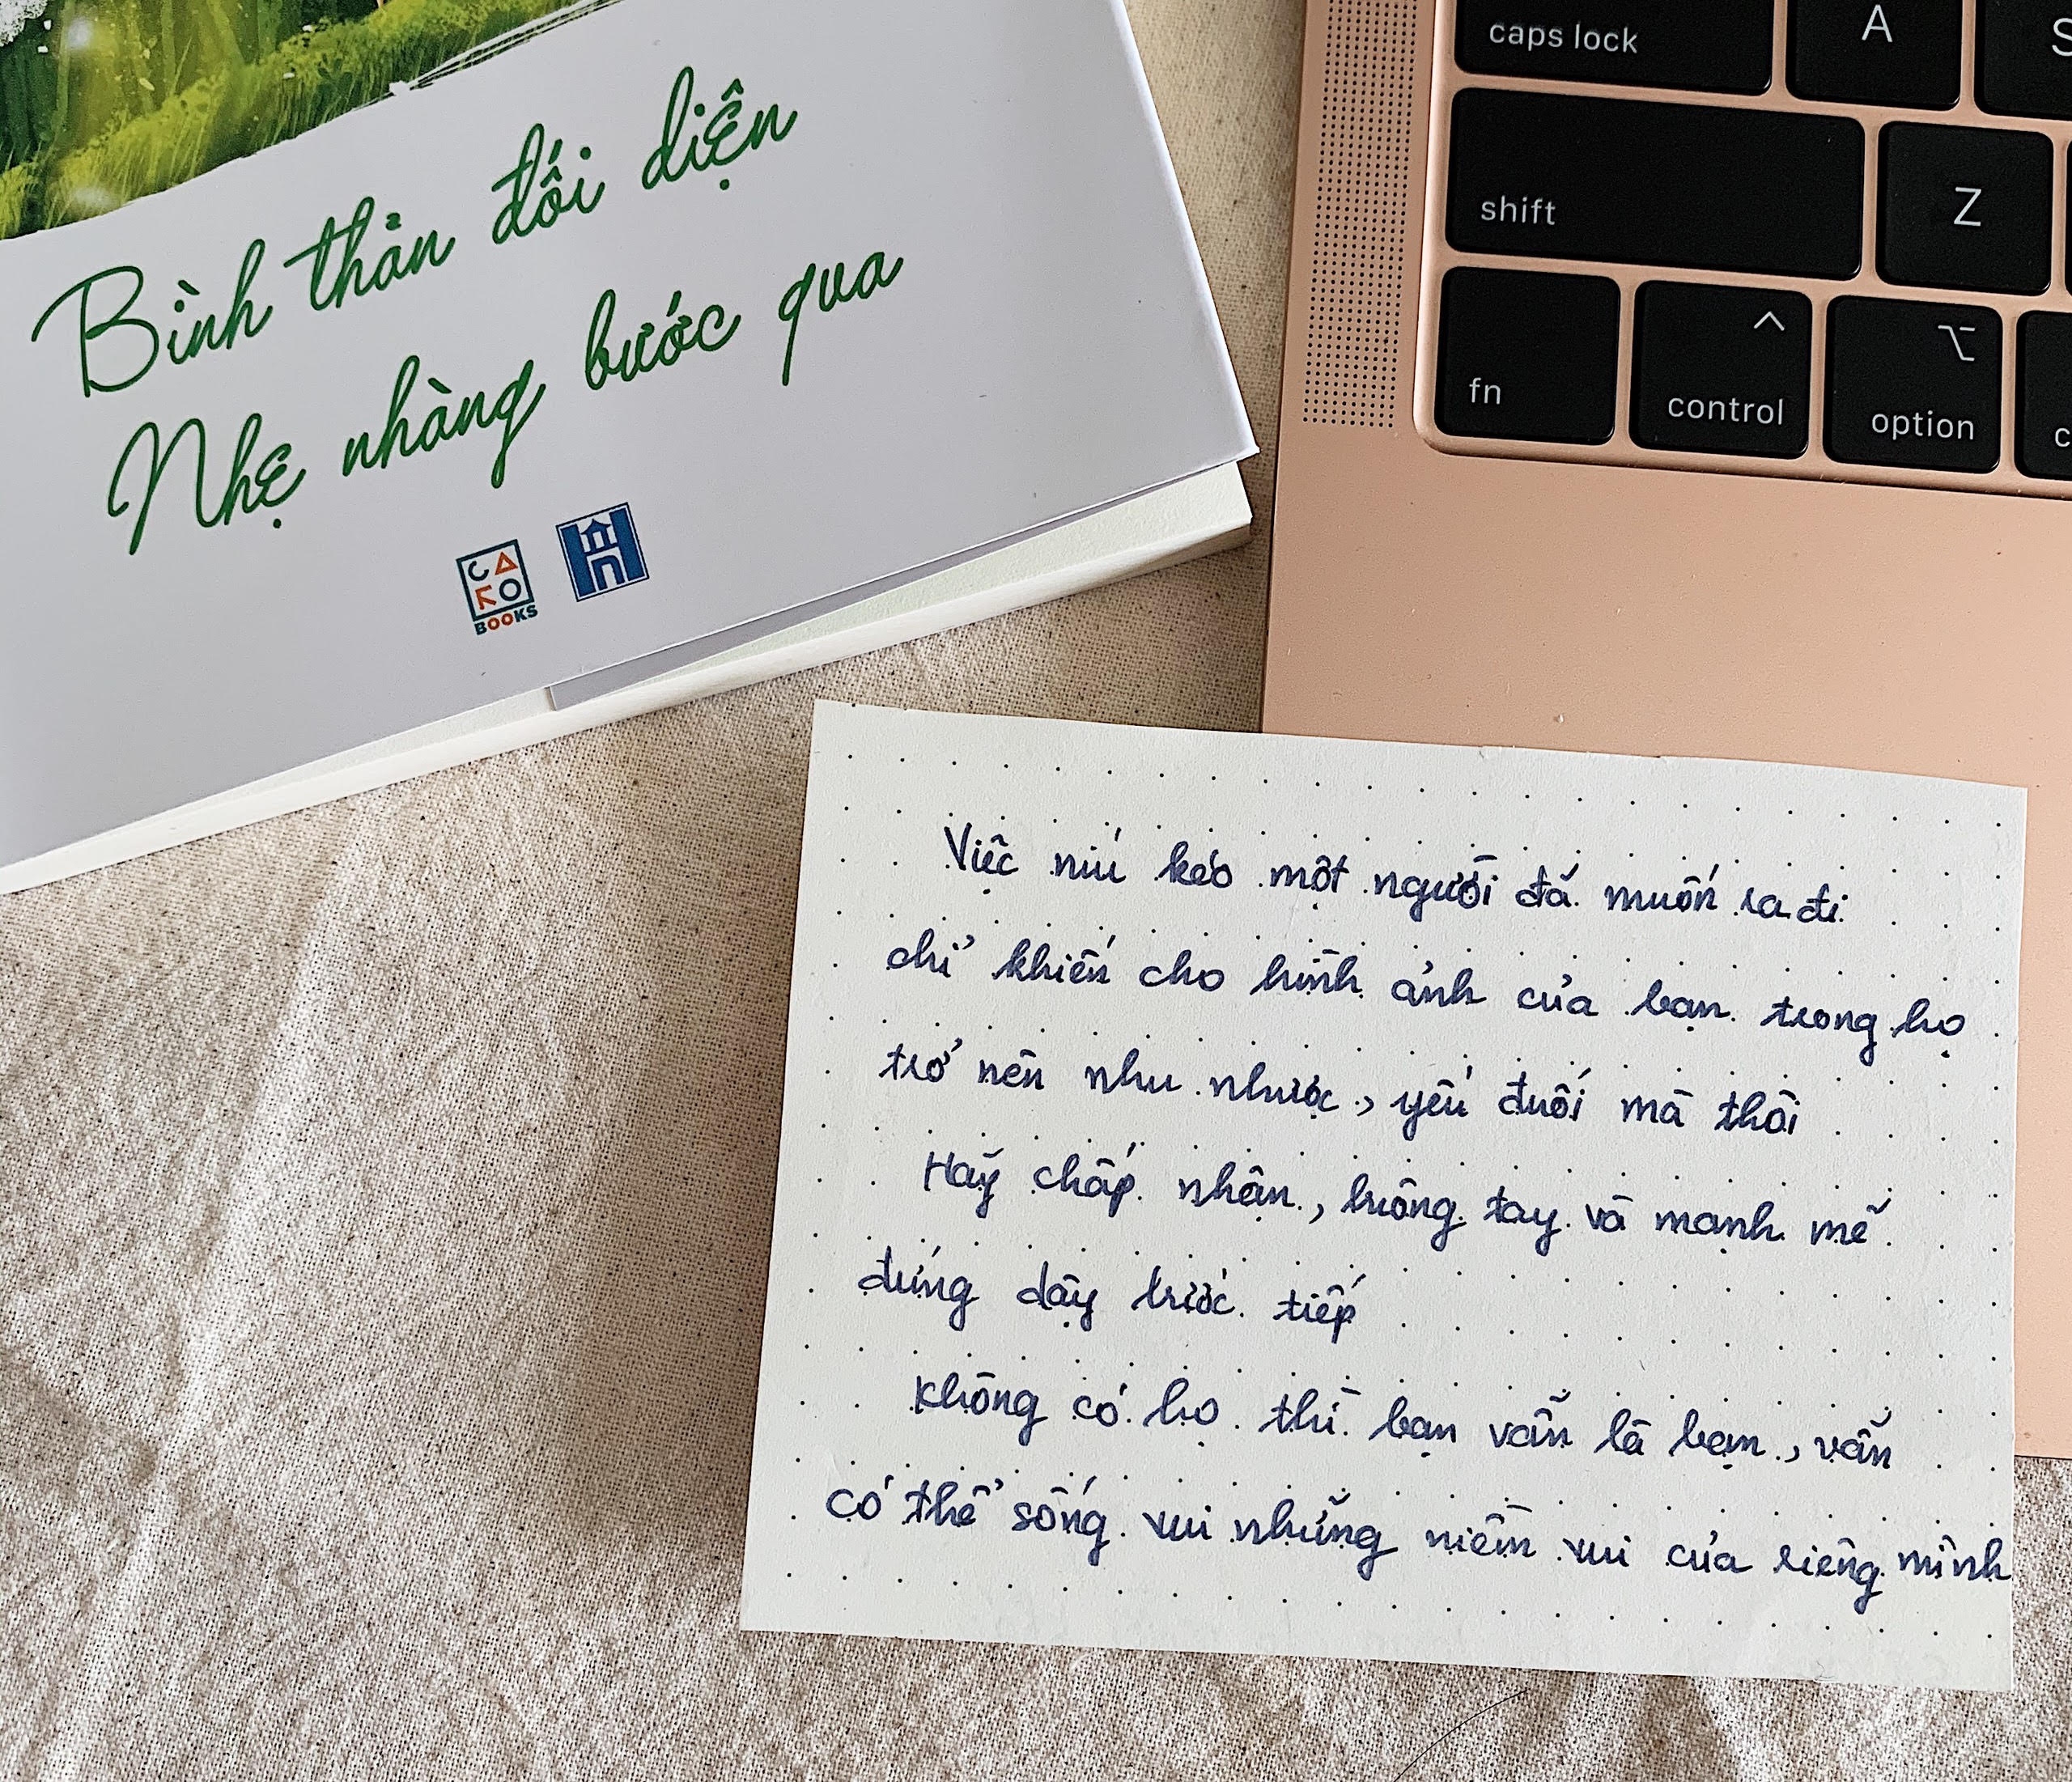 Bình thản đối diện
Nhẹ nhàng bước qua
CAKO
BOOKS
caps lock
A
S
shift
Z
fn
control
option
c
Việc níu kéo một người đã muốn ra đi
chỉ khiến cho hình ảnh của bạn trong họ
trở nên nhu nhược, yếu đuối mà thôi
Hãy chấp nhận, buông tay và mạnh mẽ
đứng dậy bước tiếp
Không có họ thì bạn vẫn là bạn, vẫn
có thể sống vui những niềm vui của riêng mình